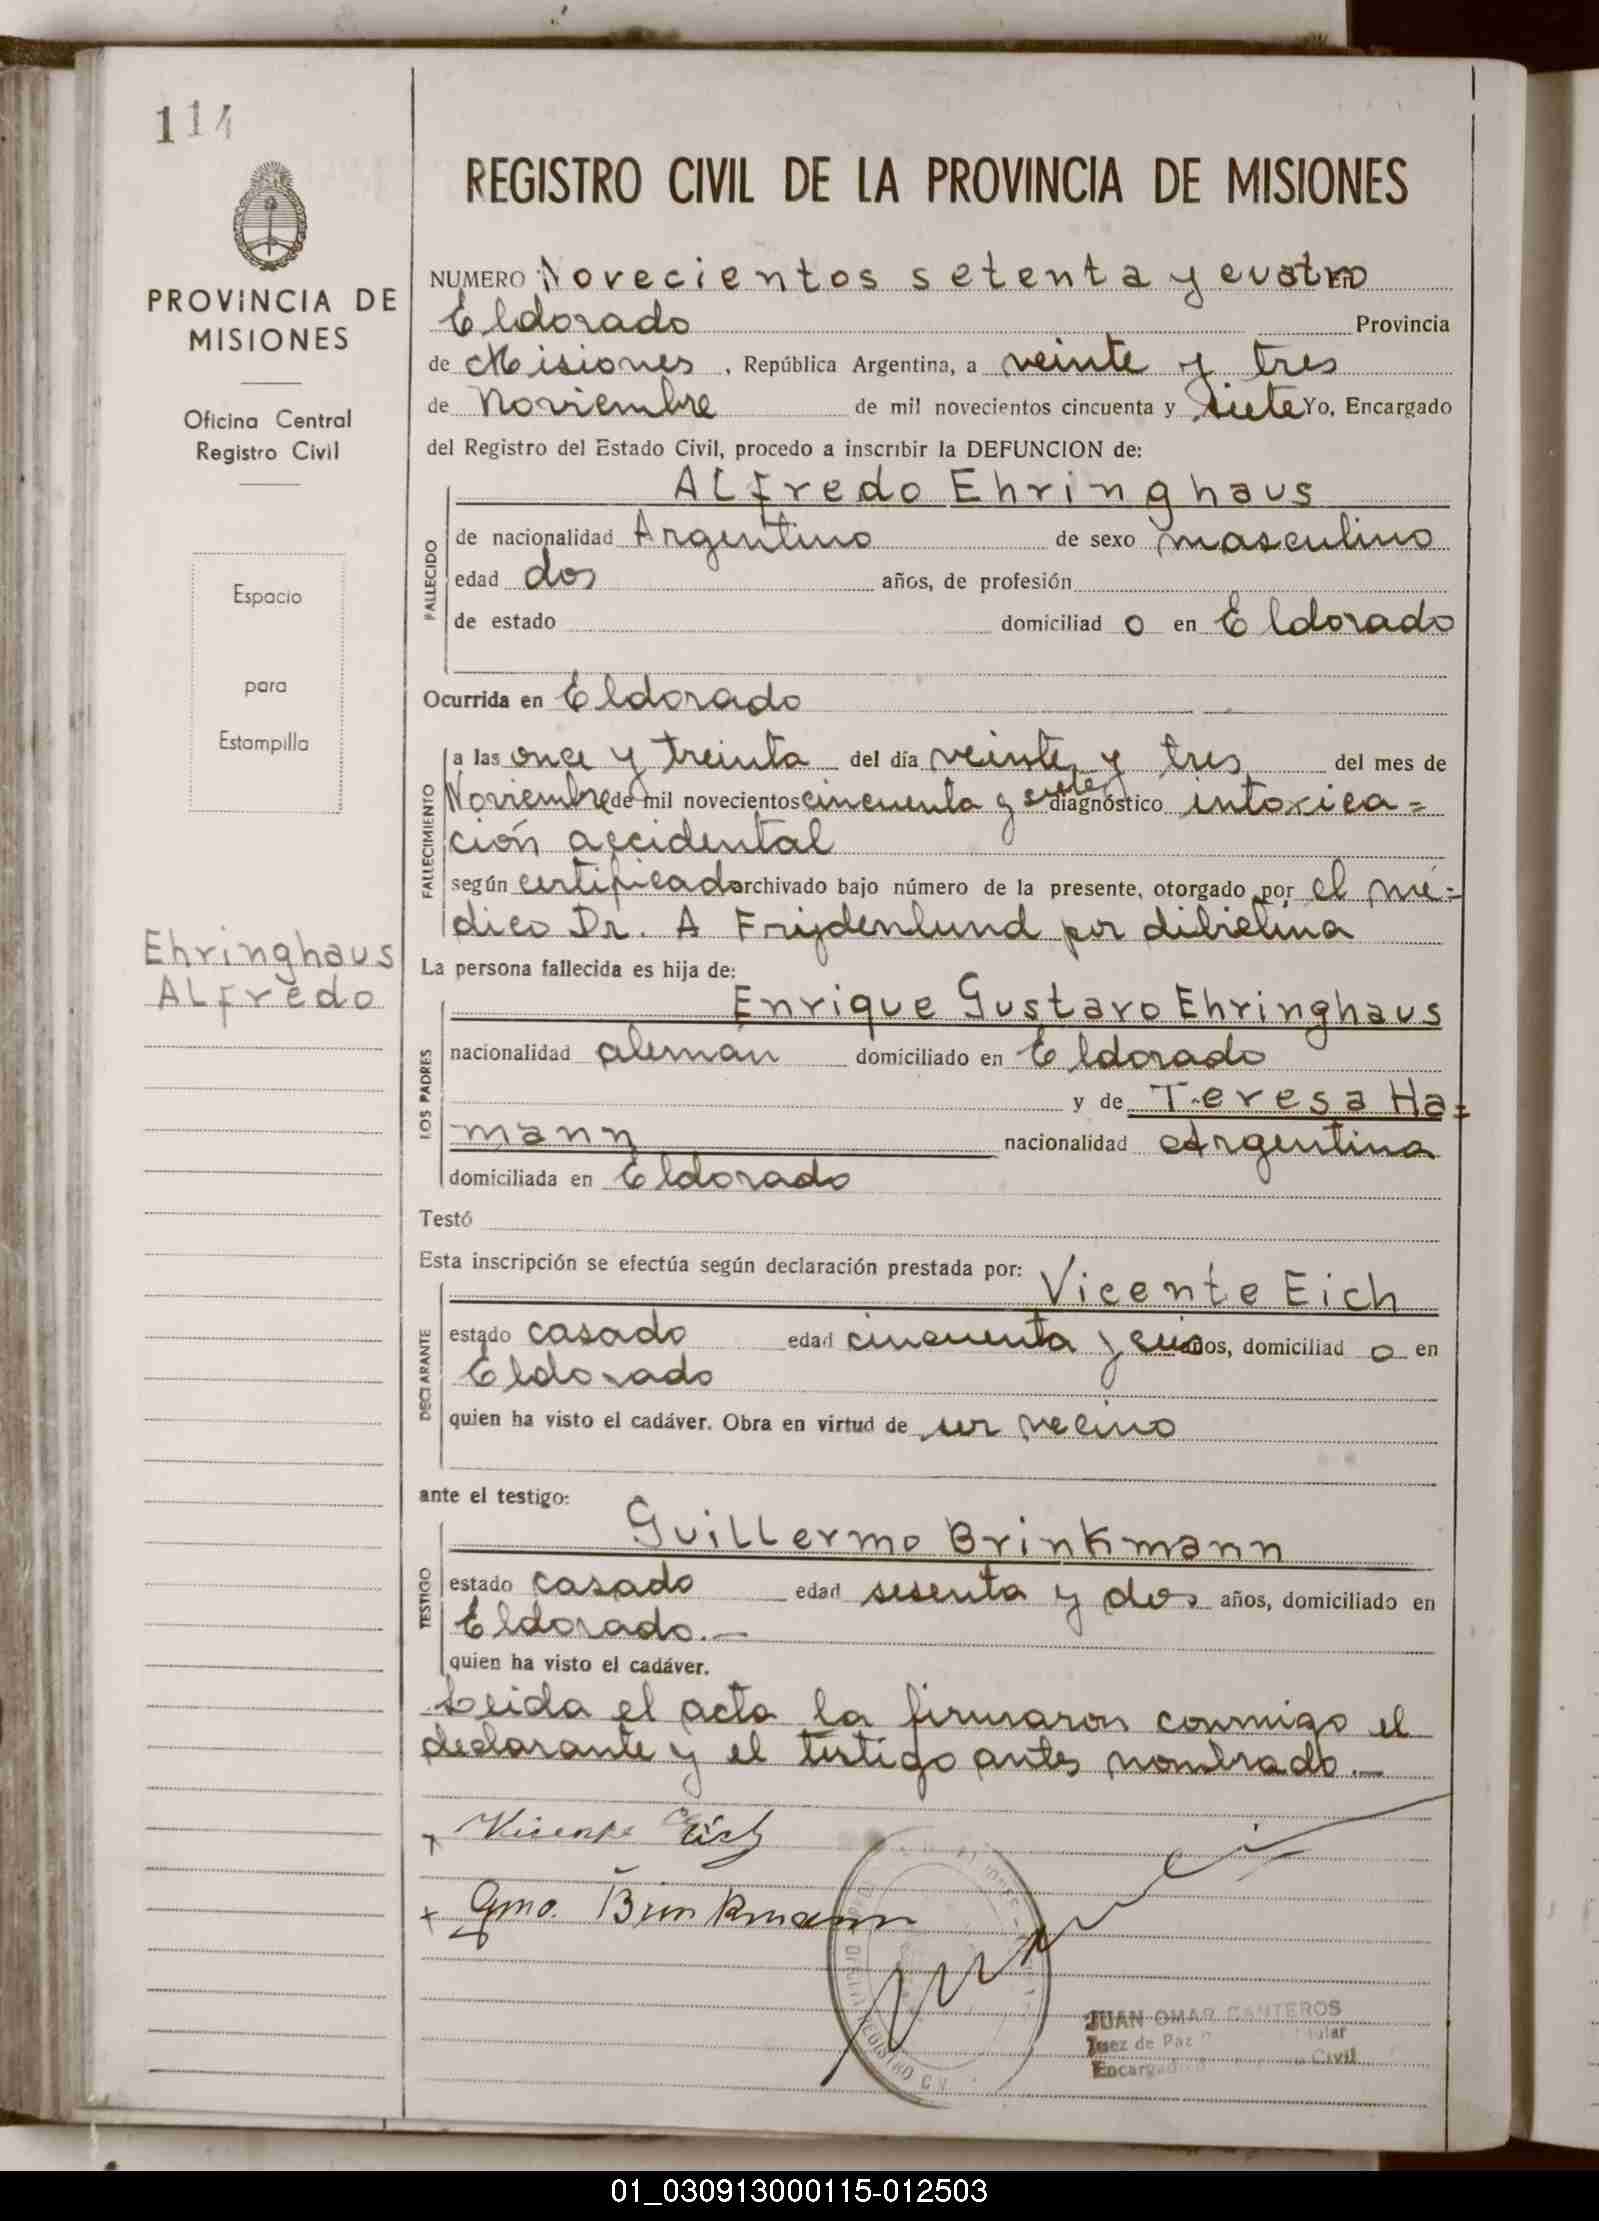 114
PROVINCIA DE
MISIONES
Oficina Central
Registro Civil
Espacio
para
Estampilla
Ehringhaus
ALfredo
REGISTRO CIVIL DE LA PROVINCIA DE MISIONES
NUMERO Novecientos setenta y cuatro En
Eldorado Provincia
de Misiones, República Argentina, a veinte y tres
de Noviembre de mil novecientos cincuenta y siete Yo, Encargado
del Registro del Estado Civil, procedo a inscribir la DEFUNCION de:
FALLECIDO
ALfredo Ehringhaus
de nacionalidad Argentino de sexo masculino
edad dos años, de profesión
de estado domiciliad o en Eldorado
Ocurrida en Eldorado
FALLECIMIENTO
a las once y treinta del día veinte y tres del mes de
Noviembre de mil novecientos cincuenta y siete diagnóstico intoxica=
ción accidental
según certificado archivado bajo número de la presente, otorgado por el mé=
dico Dr. A Frijdenlund por
La persona fallecida es hija de:
LOS PADRES
Enrique Gustavo Ehringhaus
nacionalidad alemán domiciliado en Eldorado
y de Teresa Ha=
mann nacionalidad Argentina
domiciliada en Eldorado
Testó
Esta inscripción se efectúa según declaración prestada por:
DECLARANTE
Vicente Eich
estado casado edad cincuenta y años, domiciliad o en
Eldorado
quien ha visto el cadáver. Obra en virtud de ser vecino
ante el testigo:
TESTIGO
GuiLLermo Brinkmann
estado casado edad sesenta y dos años, domiciliado en
Eldorado.—
quien ha visto el cadáver.
Leida el acta la firmaron conmigo el
declarante y el testigo antes nombrado.—
Vicente Eich
Gmo. Brinkmann
JUAN OMAR CANTEROS
Juez de Paz Titular
Encargado Civil
01_030913000115-012503